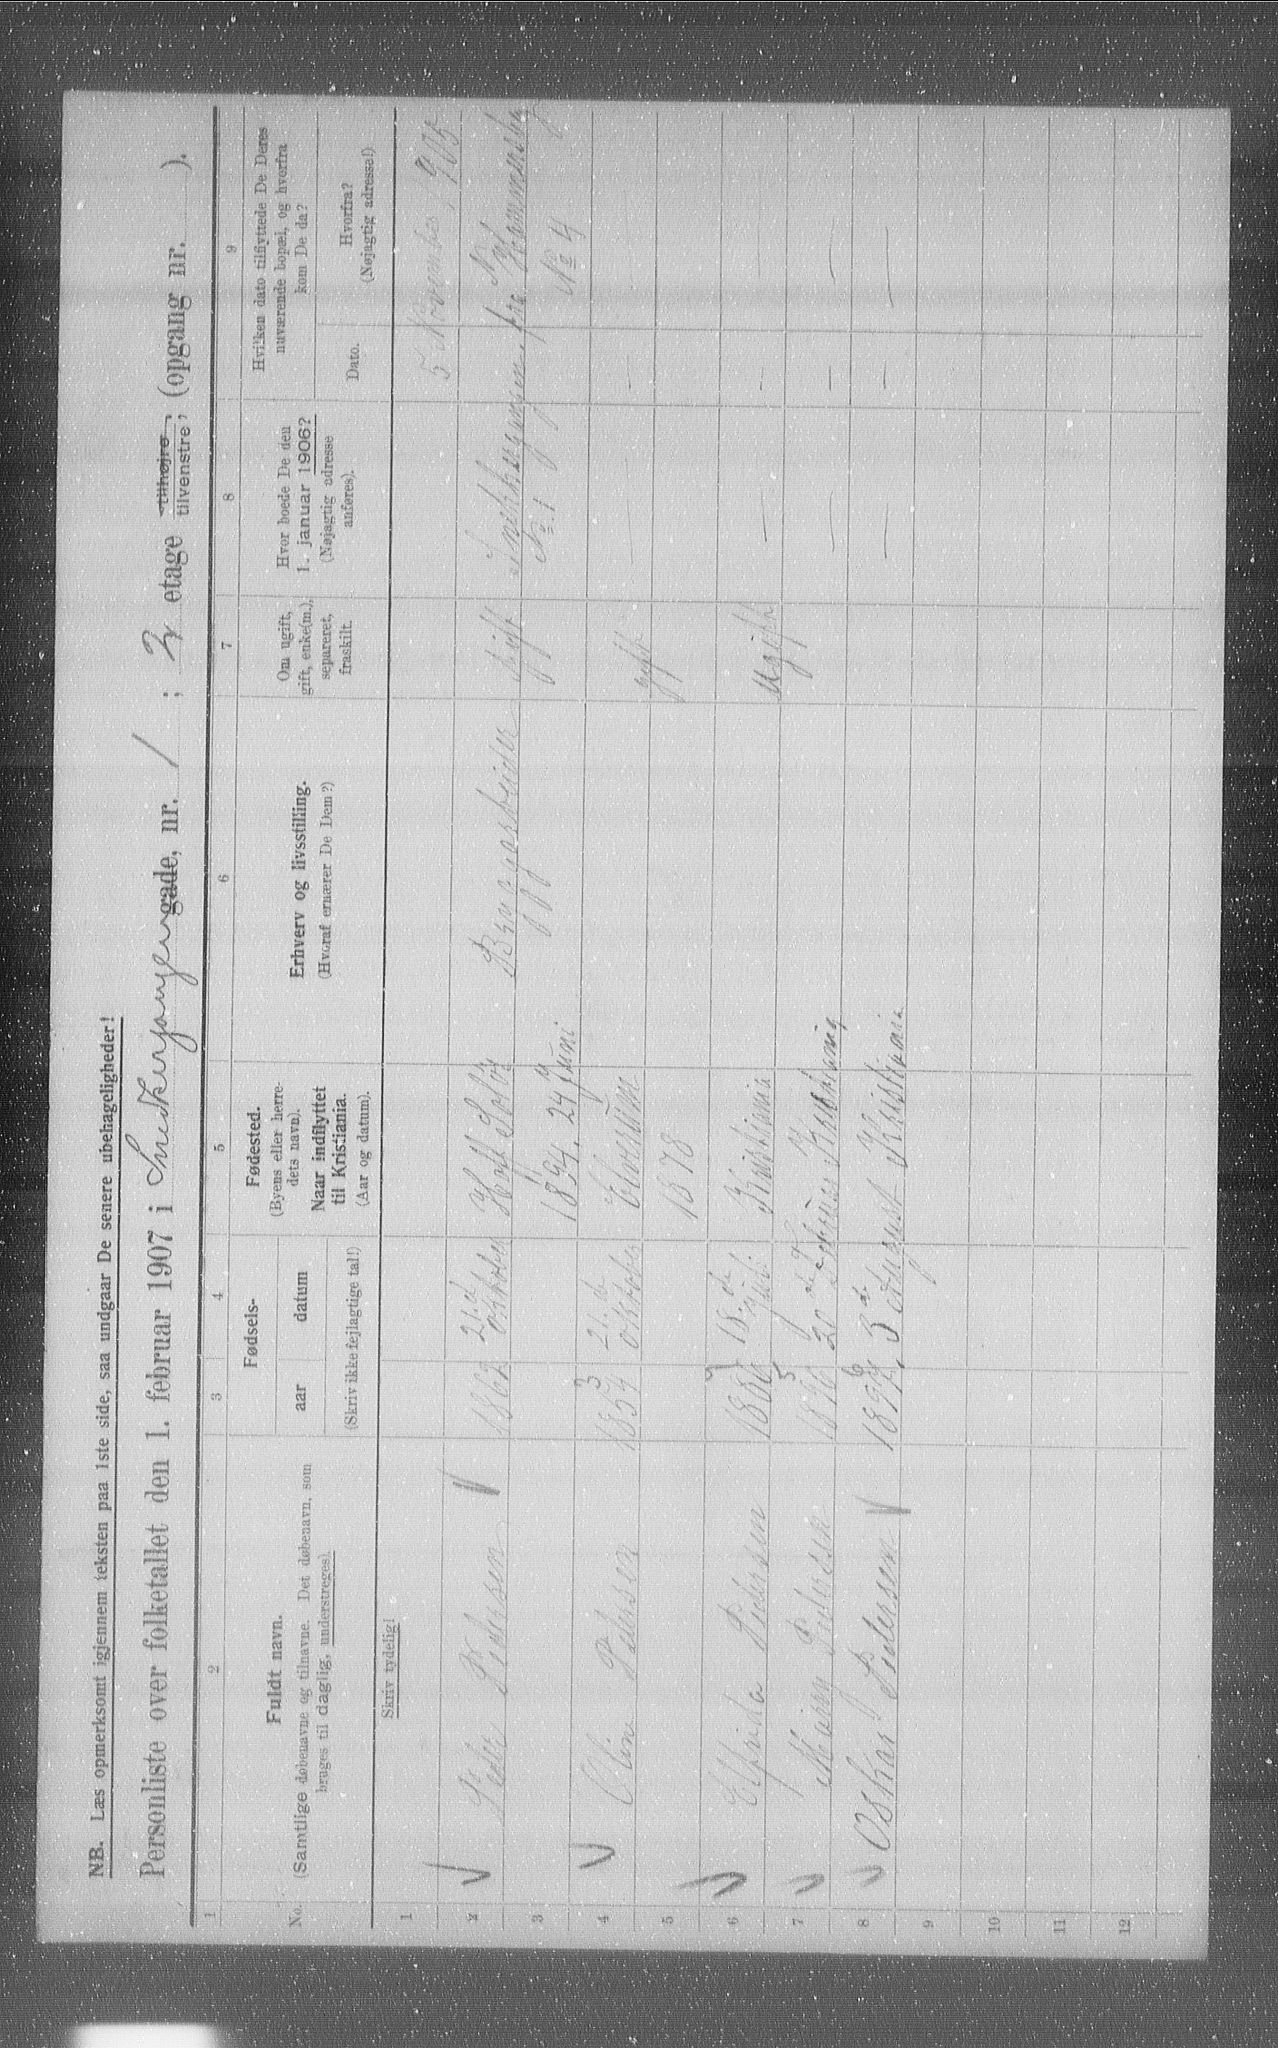 NB. Læs opmerksomt igjennem teksten paa 1ste side, saa undgaar De senere ubehageligheder!
Personliste over folketallet den 1. februar 1907 i Snedkergangen gade, nr. 1 ; 2 etage tilhøjre, tilvenstre, (opgang nr. ).
1 2 3 4 5 6 7 8 9
No.
Fuldt navn.
(Samtlige døbenavne og tilnavne. Det døbenavn, som
bruges til daglig, understreges).
Skriv tydelig!
Fødsels-
aar datum
(Skriv ikke fejlagtige tal!)
Fødested.
(Byens eller herre-
dets navn).
Naar indflyttet
til Kristiania.
(Aar og datum).
Erhverv og livsstilling.
(Hvoraf ernærer De Dem?)
Om ugift,
gift, enke(m.),
separeret,
fraskilt.
Hvor boede De den
1. januar 1906?
(Nøjagtig adresse
anføres).
Hvilken dato tilflyttede De Deres
nuværende bopæl, og hvorfra
kom De da?
Dato.
Hvorfra?
(Nøjagtig adresse!)
1 5 November 1905
2 Peder Pedersen 1862 21 October Hof Solør Bryggarbeider gift Snekkergangen fra
3 1894. 24 Juni No. 1 No 4
4 Oline Pedersen 1854 21. October Elverum gift — —
5 1878
6 Elfrida Pedersen 18. Juli Kristiania Ugift — — —
7 Pedersen 20 Kristiania — — —
8 Oskar Pedersen 3 August Kristiania — — —
9
10
11
12